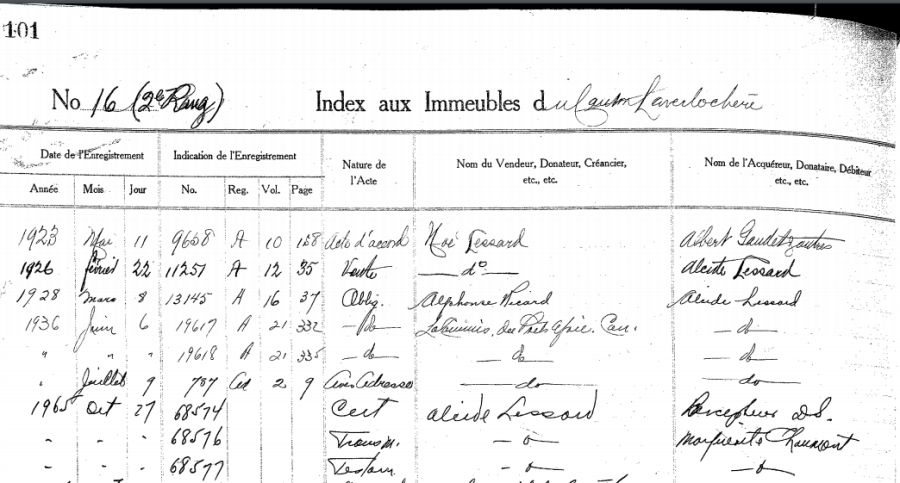 101
No 16 (2e Rang) Index aux Immeubles du Canton Laverlochère
Date de l'Enregistrement Indication de l'Enregistrement Nature de l'Acte Nom du Vendeur, Donateur, Créancier, etc., etc. Nom de l'Acquéreur, Donataire, Débiteur etc., etc.
Année Mois Jour No. Reg. Vol. Page
1923 Mai 11 9658 A 10 158 Acte d'accord Noé Lessard Albert Gaudet & autres
1926 février 22 11251 A 12 35 Vente — do — Alcide Lessard
1928 mars 8 13145 A 16 37 Oblig. Alphonse Ricard Alcide Lessard
1936 Juin 6 19617 A 21 332 — do — La Commis. du Prêt Agric. Can. — do —
" " " 19618 A 21 335 — do — — do — — do —
" Juillet 9 787 Ad 2 9 Avis Adresse — do — — do —
1965 Oct 27 68574 Cert Alcide Lessard Percepteur D.S.
- - - 68576 Transm. — o — Marguerite Chaumont
- - - 68577 Testam — o — — o —